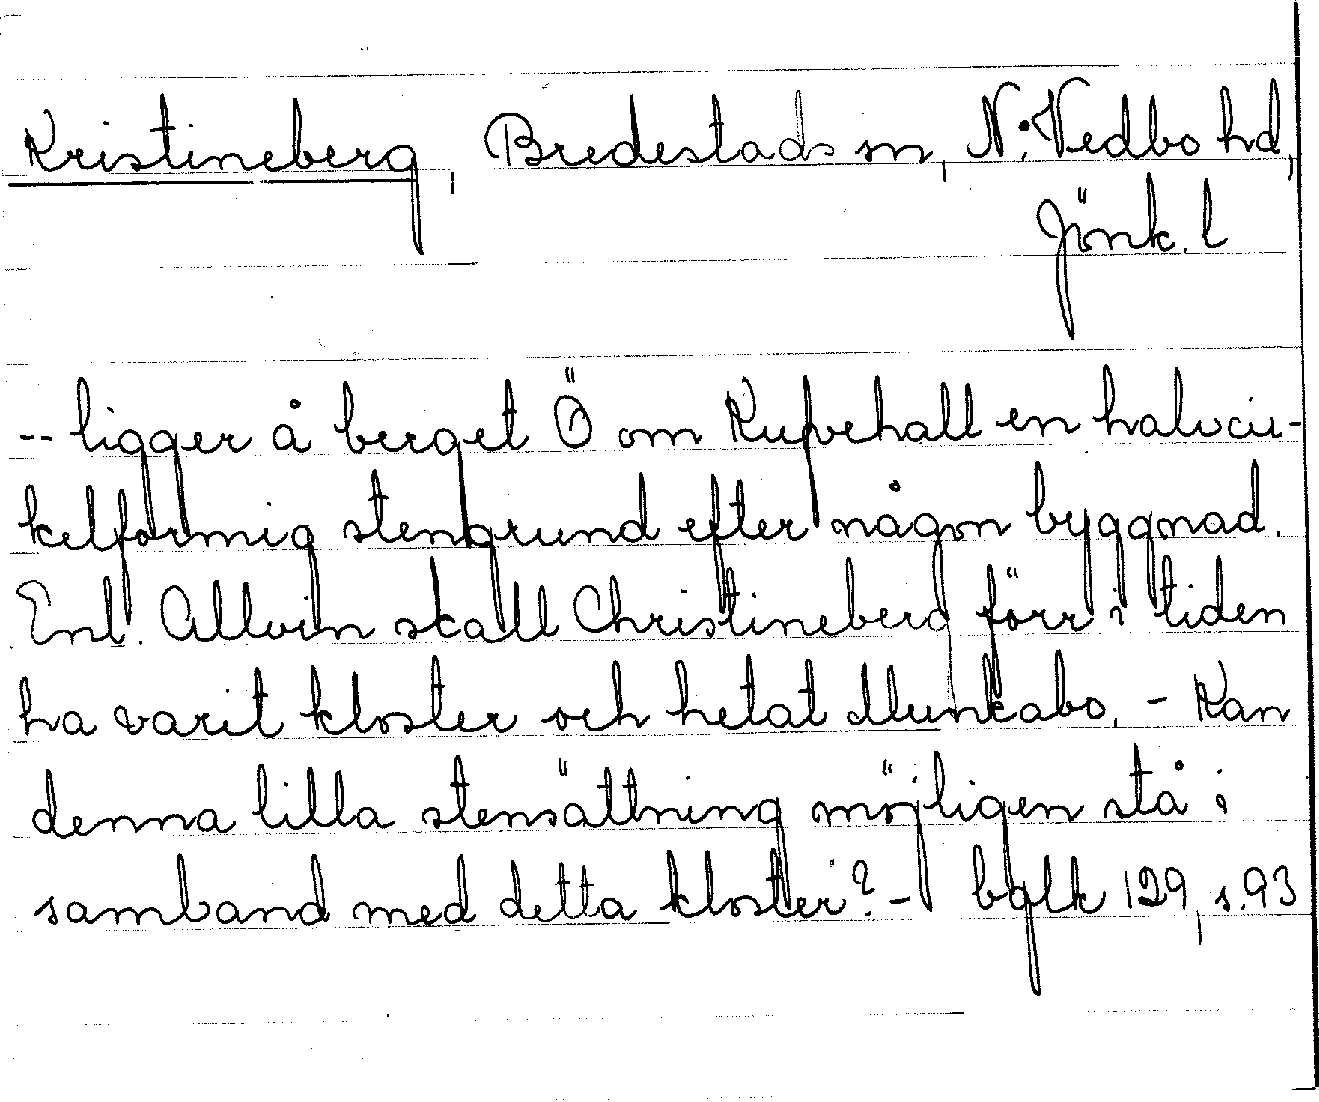 Kristineberg, Bredestads sn, N. Vedbo hd,
Jönk. l
-- ligger å berget Ö om Kupehall en halvcir-
kelformig stengrund efter någon byggnad.
Enl. Allvin skall Christineberg förr i tiden
ha varit kloster och hetat Munkabo. - Kan
denna lilla stensättning möjligen stå i
samband med detta kloster? - bglk 129, s. 93